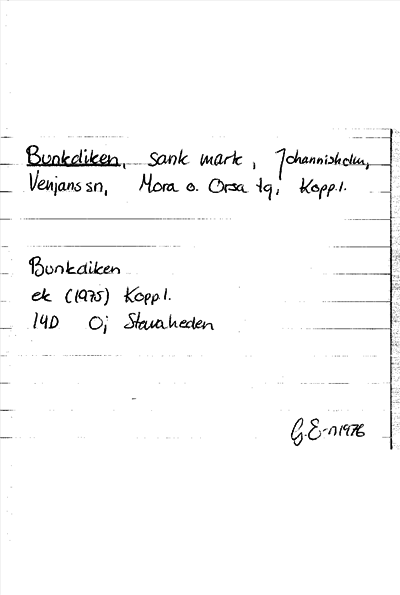 Bunkdiken, sank mark, Johannisholm,
Venjans sn, Mora o. Orsa tg, Koppl.
Bunkdiken
ek (1975) Koppl.
14D 0j Stavaheden
G.E-n 1976